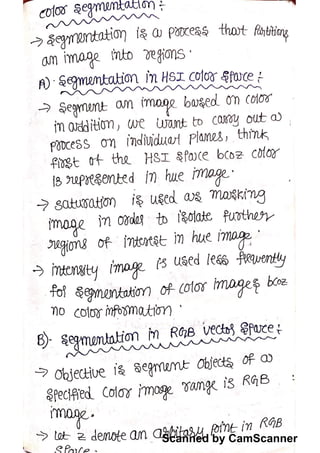 color segmentation :
→ segmentation is a process that partitions
an image into regions.
A) . segmentation in HSI color space :
→ segment an image based on color
in addition, we want to carry out a
process on individual planes, think
first of the HSI space bcoz color
is represented in hue image.
→ saturation is used as masking
image in order to isolate further
regions of interest in hue image.
→ intensity image is used less frequently
for segmentation of color images bcoz
no color information.
B) . segmentation in RGB vector space :
→ objective is segment objects of a
specified color image range is RGB
image.
→ let z denote an arbitary point in RGB
space.
Scanned by CamScanner